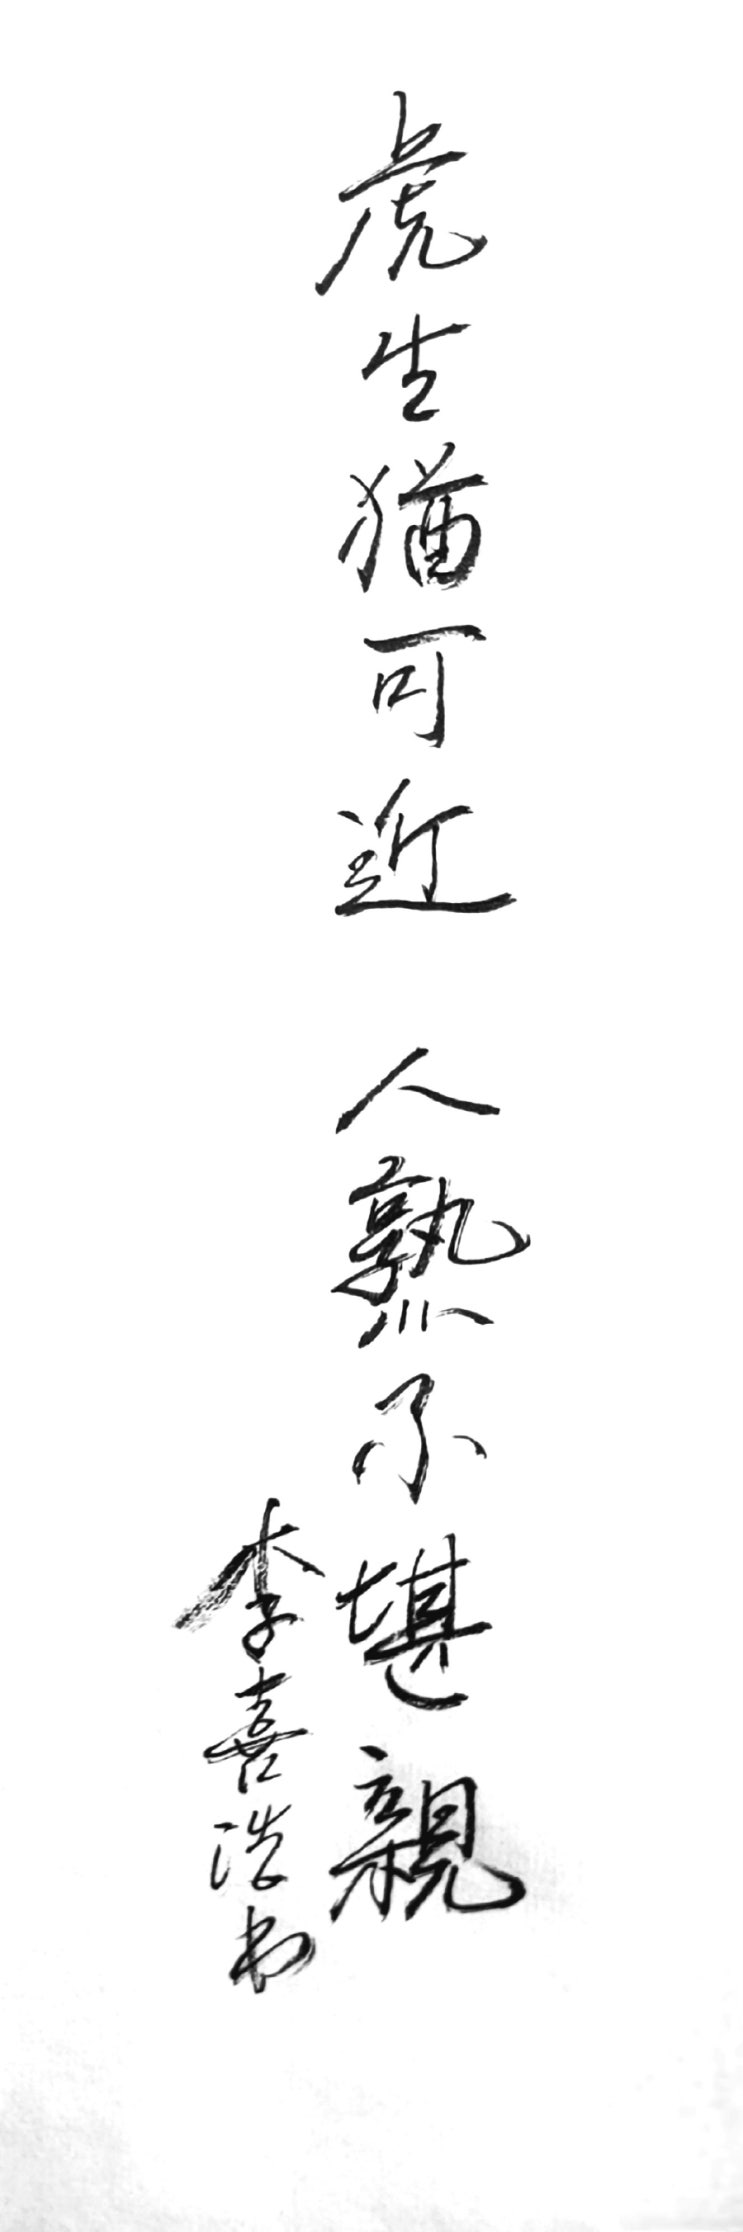 虎生猶可近 人熟不堪親
李喜浩书